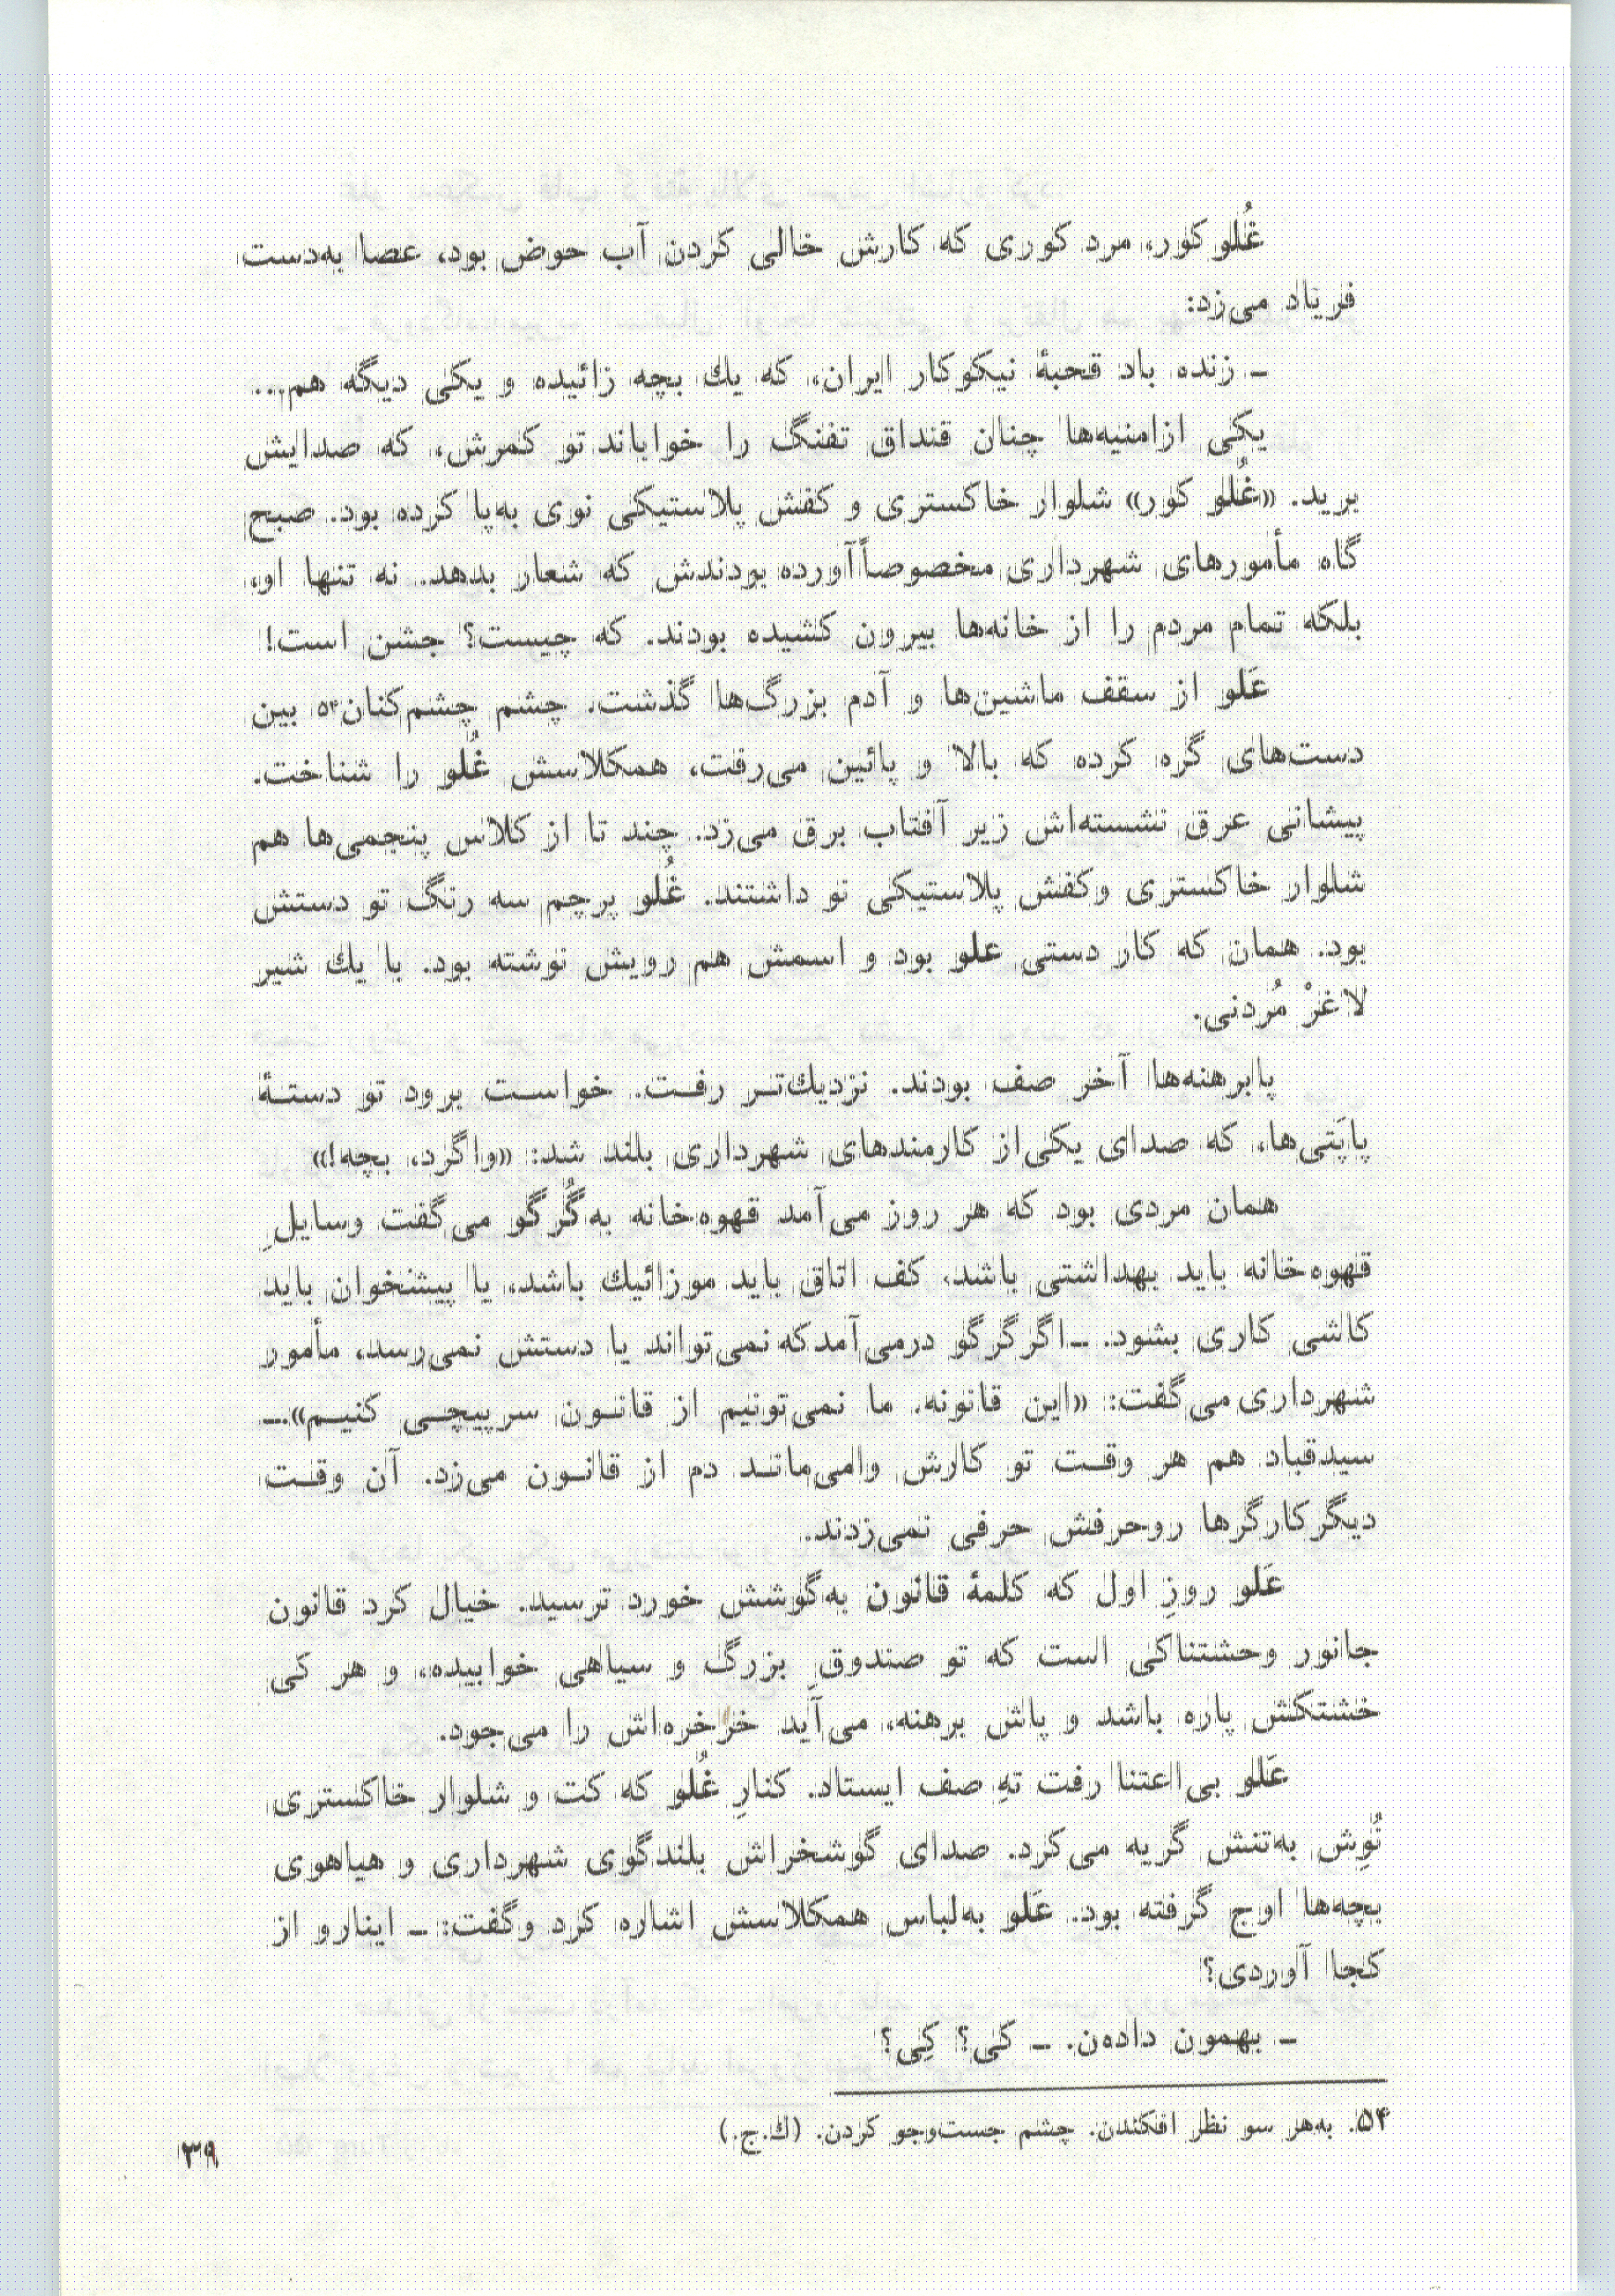 غُلو کور، مرد کوری که کارش خالی کردن آب حوض بود، عصا به‌دست
فریاد می‌زد:
ـ زنده باد قحبهٔ نیکوکار ایران، که یك بچه زائیده و یکی دیگه هم...
یکی ازامنیه‌ها چنان قنداق تفنگ را خواباند تو کمرش، که صدایش
برید. «غُلو کور» شلوار خاکستری و کفش پلاستیکی نوی به‌پا کرده بود. صبح
گاه مأمورهای شهرداری مخصوصاً آورده بودندش که شعار بدهد. نه تنها او،
بلکه تمام مردم را از خانه‌ها بیرون کشیده بودند. که چیست؟ جشن است!
عَلو از سقف ماشین‌ها و آدم بزرگ‌ها گذشت. چشم چشم‌کنان۵۴ بین
دست‌های گره کرده که بالا و پائین می‌رفت، همکلاسش غُلو را شناخت.
پیشانی عرق نشسته‌اش زیر آفتاب برق می‌زد. چند تا از کلاس پنجمی‌ها هم
شلوار خاکستری وکفش پلاستیکی نو داشتند. غُلو پرچم سه رنگ تو دستش
بود. همان که کار دستی علو بود و اسمش هم رویش نوشته بود. با یك شیر
لاغرْ مُردنی.
پابرهنه‌ها آخر صف بودند. نزدیك‌تـر رفـت. خواسـت برود تو دستـهٔ
پاپَتی‌ها، که صدای یکی‌از کارمندهای شهرداری بلند شد: «واگرد، بچه!»
همان مردی بود که هر روز می‌آمد قهوه‌خانه به‌گُرگو می‌گفت وسایلِ
قهوه‌خانه باید بهداشتی باشد، کف اتاق باید موزائیك باشد، یا پیشخوان باید
کاشی کاری بشود. ـ‌اگرگرگو درمی‌آمدکه‌نمی‌تواند یا دستش نمی‌رسد، مأمور
شهرداری می‌گفت: «این قانونه. ما نمی‌تونیم از قانـون سرپیچـی کنیـم»ـ‌
سیدقباد هم هر وقـت تو کارش وامی‌مانـد دم از قانـون می‌زد. آن وقـت
دیگرکارگرها روحرفش حرفی نمی‌زدند.
عَلو روزِ اول که کلمهٔ قانون به‌گوشش خورد ترسید. خیال کرد قانون
جانور وحشتناکی است که تو صندوقِ بزرگ و سیاهی خوابیده، و هر کی
خشتکش پاره باشد و پاش برهنه، می‌آید خرْخره‌اش را می‌جود.
عَلو بی‌اعتنا رفت تهِ صف ایستاد. کنارِ غُلو که کت و شلوار خاکستری
نُوِش به‌تنش گریه می‌کرد. صدای گوشخراش بلندگوی شهرداری و هیاهوی
بچه‌ها اوج گرفته بود. عَلو به‌لباس همکلاسش اشاره کرد وگفت: ـ اینارو از
کجا آوردی؟
ـ بهمون داده‌ن. ـ کی؟ کِی؟
۵۴. به‌هر سو نظر افکندن. چشم جست‌وجو کردن. (ك.ج.)
۳۹